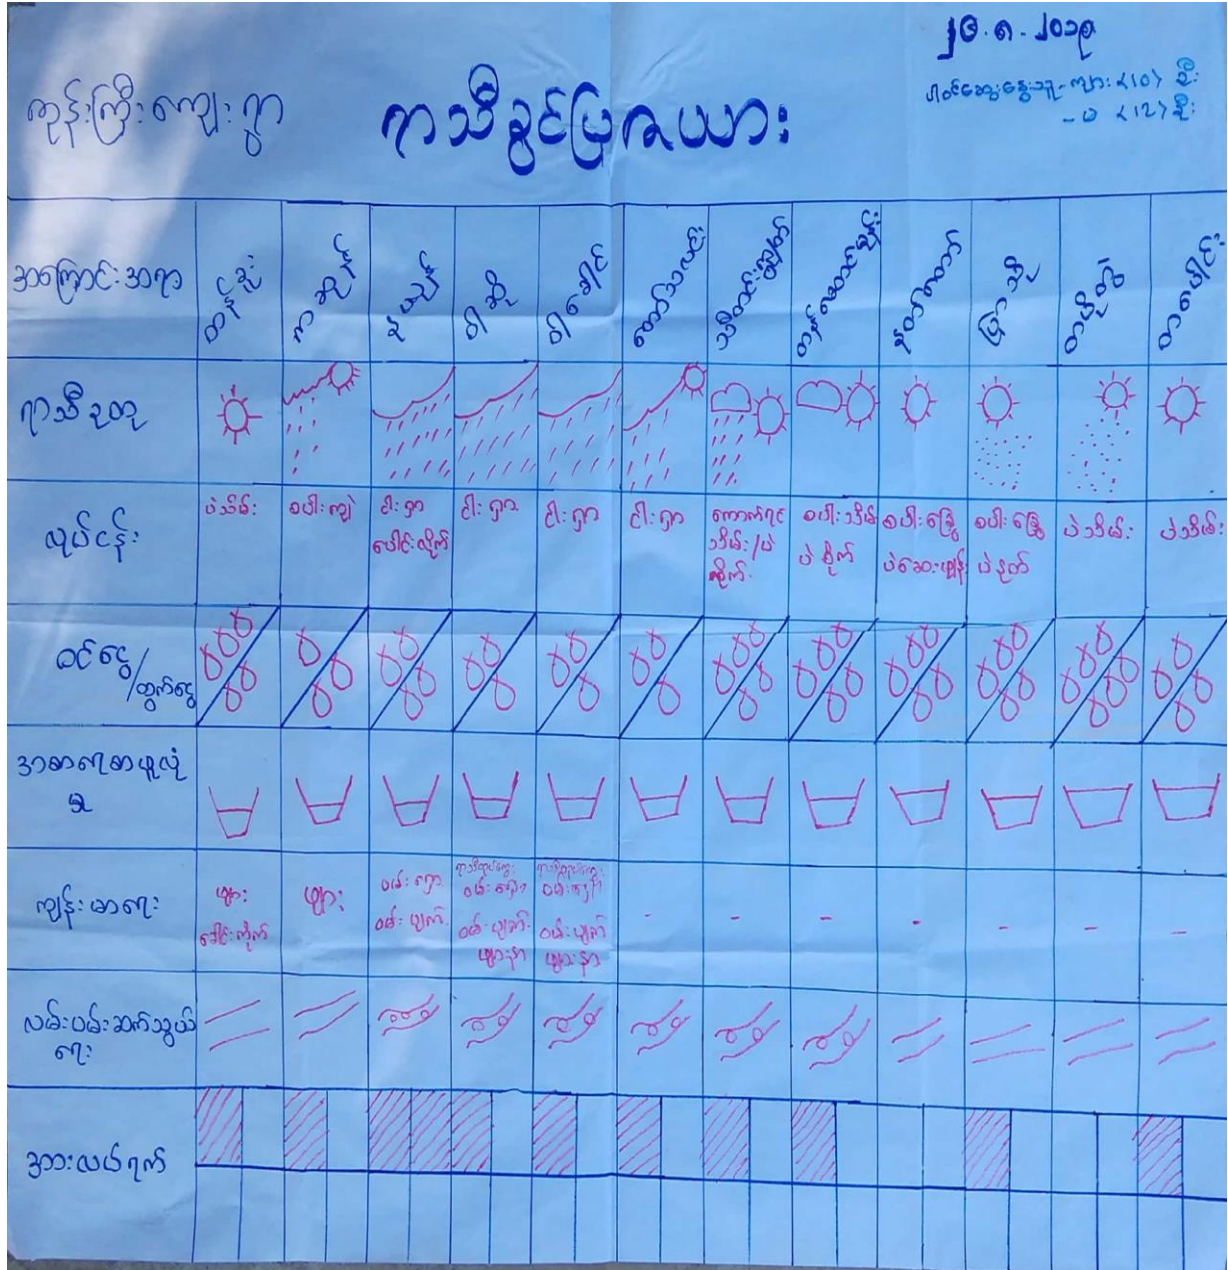 ၂၆.၈.၂၀၁၉
ကုန်းကြီးကျေးရွာ
ရာသီခွင်ပြဇယား
ပါဝင်ဆွေးနွေးသူ-ကျား <10> ဦး
- မ <12> ဦး
အကြောင်းအရာ တန်ခူး ကဆုန် နယုန် ဝါဆို ဝါခေါင် တော်သလင်း သီတင်းကျွတ် တန်ဆောင်မုန်း နတ်တော် ပြာသို တပို့တွဲ တပေါင်း
ရာသီဥတု
လုပ်ငန်း
ပဲသိမ်း
စပါးကျဲ
ငါးရှာ
ပေါင်းလိုက်
ငါးရှာ
ငါးရှာ
ငါးရှာ
ကောက်ရင်
သိမ်း/ပဲ
စိုက်
စပါးသိမ်း
ပဲစိုက်
စပါးခြွေ
ပဲဆေးဖျန်း
စပါးခြွေ
ပဲနုတ်
ပဲသိမ်း
ပဲသိမ်း
ဝင်ငွေ/
ထွက်ငွေ
အစာရေစာဖူလုံ
မှု
ကျန်းမာရေး
ဖျား
ခေါင်းကိုက်
ဖျား
ဝမ်းလျှော
ဝမ်းပျက်
ရာသီတုပ်ကွေး
ဝမ်းလျှော
ဝမ်းပျက်
ဖျားနာ
ရာသီတုပ်ကွေး
ဝမ်းလျှော
ဝမ်းပျက်
ဖျားနာ
- - - - - - -
လမ်းပမ်းဆက်သွယ်
ရေး
အားလပ်ရက်